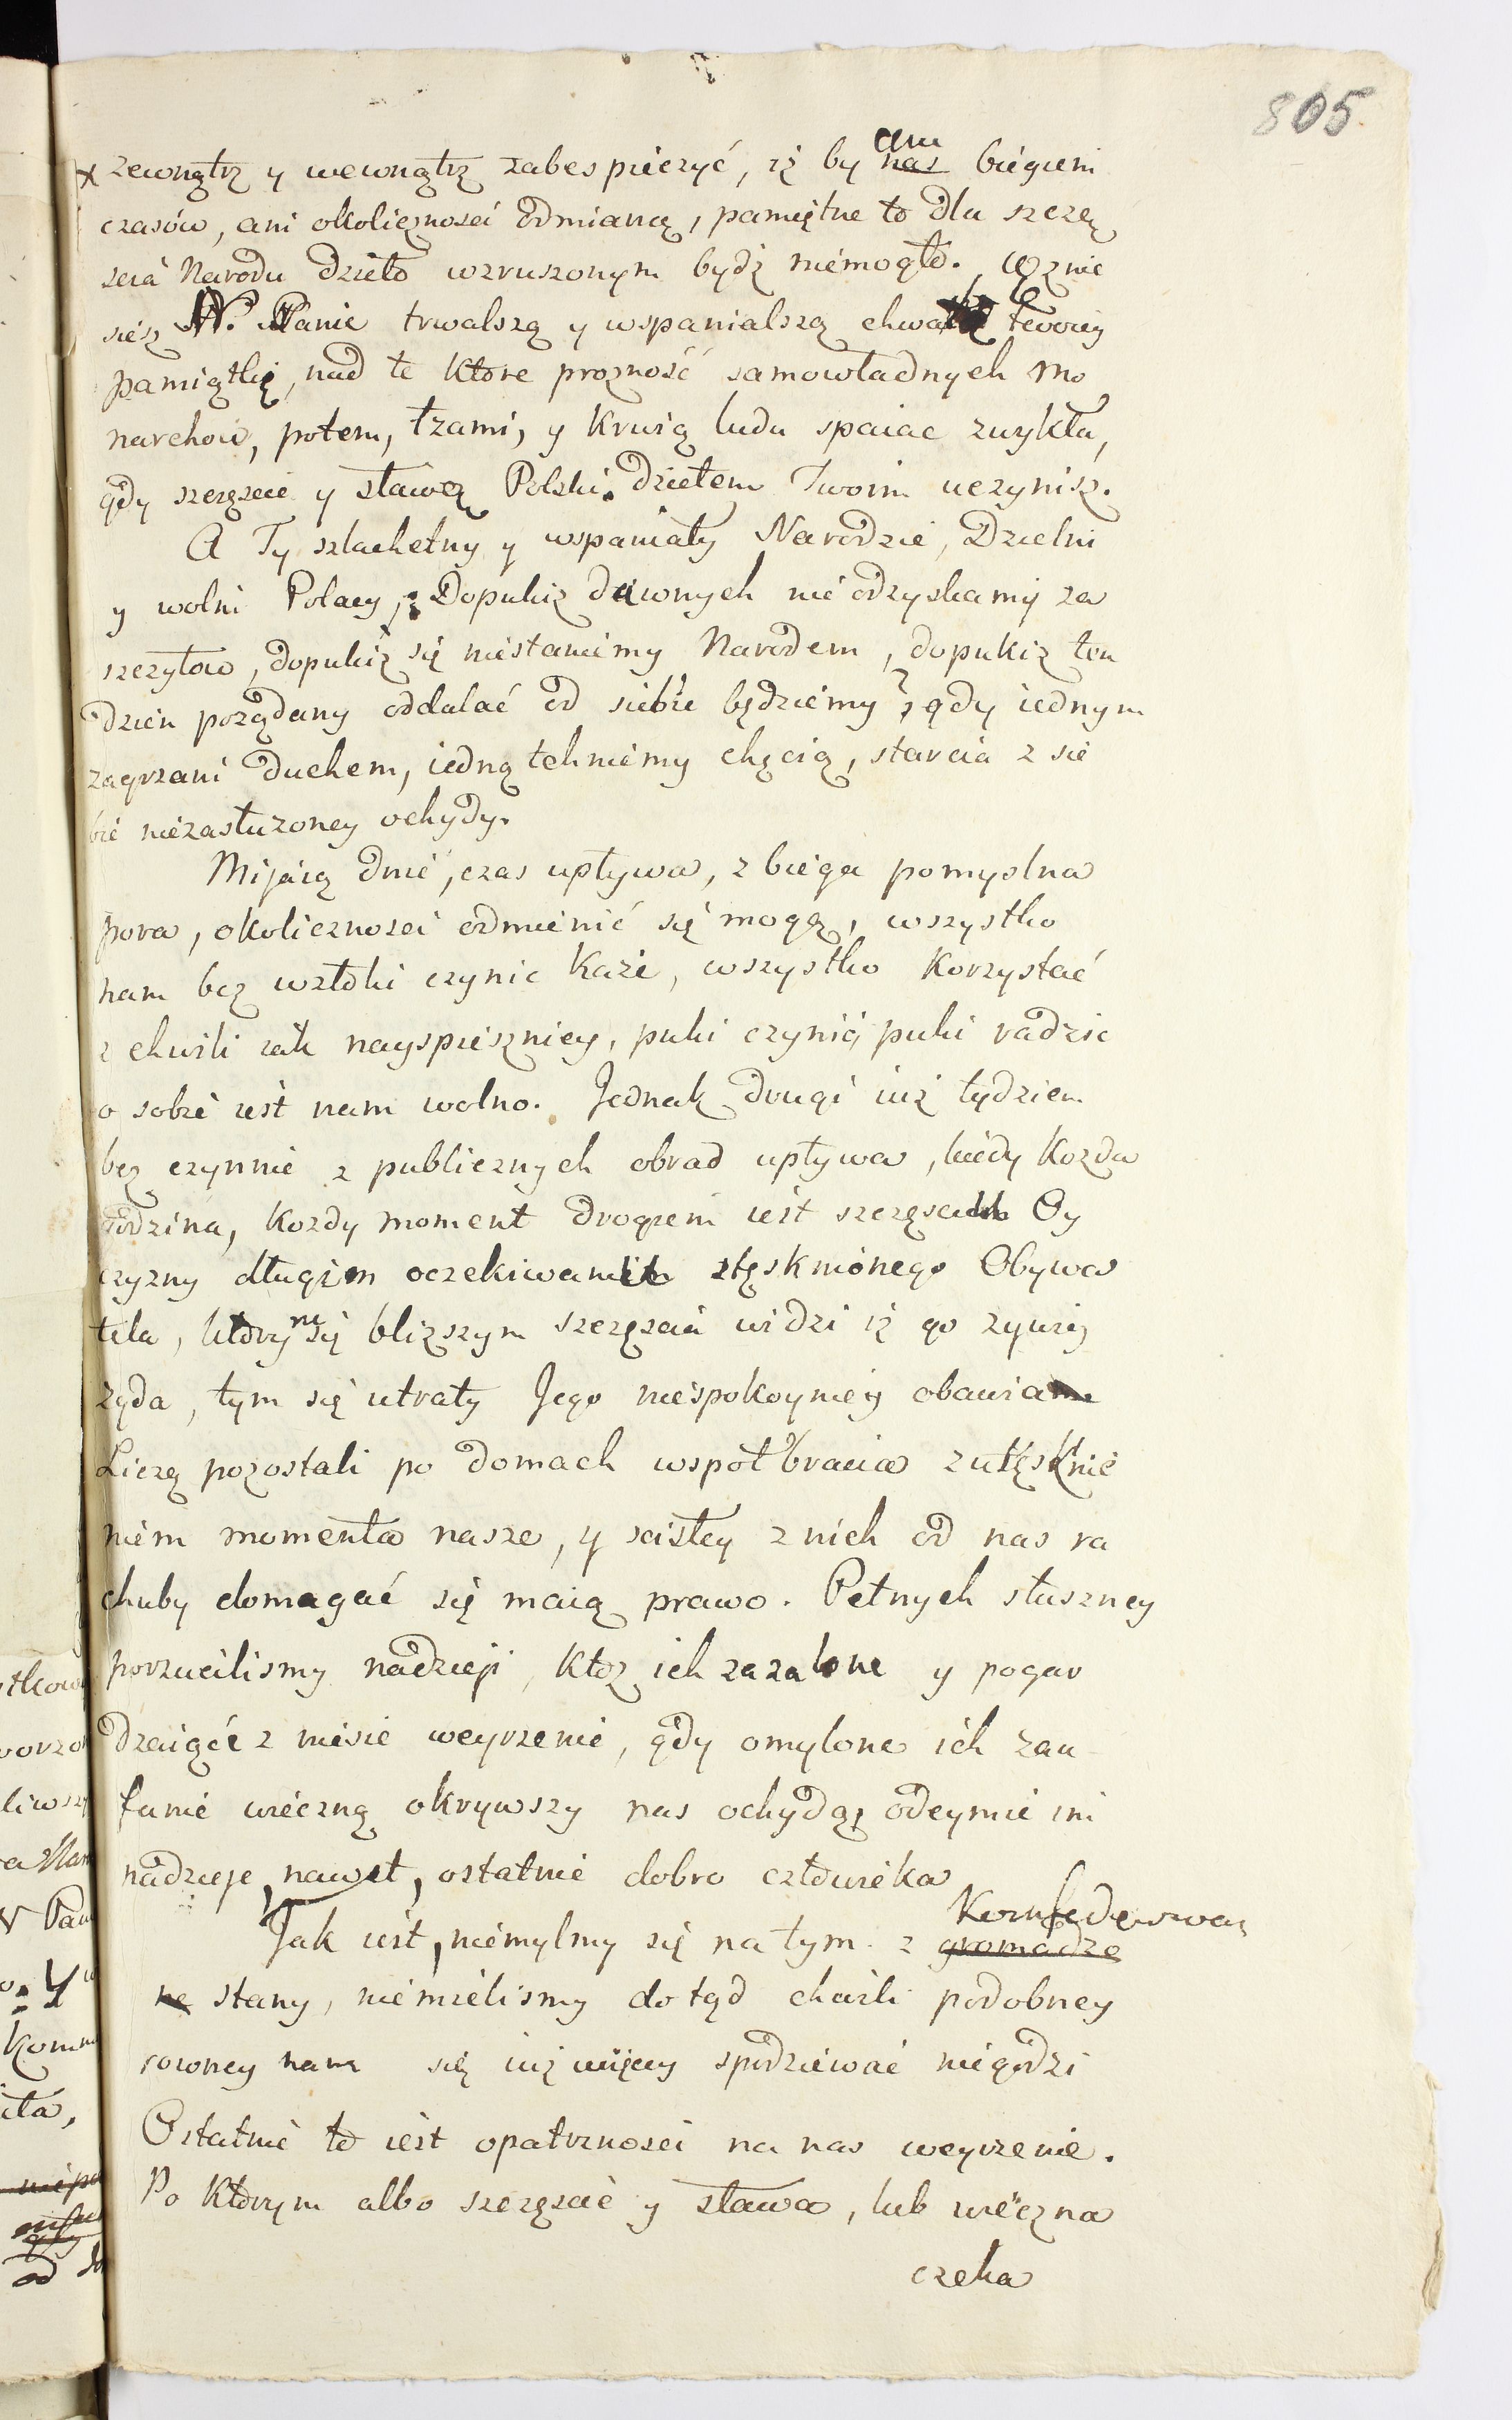 805
x zewnątrz y wewnątrz zabespieczyć, iż by ~~nas~~ ani biegiem
czasów, ani okoliczności odmianą, pamiętne to dla szczę
scia Narodu dzieło wzruszonym bydź niemogło. Wznie
siesz N. Panie trwalszą y wspanialszą chwały Twoiey
pamiątkę, nad te ktore prożność samowładnych Mo
narchow, potem, łzami, y krwią ludu spaiac zwykła,
gdy szczęscie y sławę Polski dziełem Twoim uczynisz.
A Ty szlachetny y wspaniały Narodzie, Dzielni
y wolni Polacy, Dopukiż dawnych nie odzyskamy za
szczytow, dopukiż się niestaniemy Narodem, dopukiż ten
dzien pożądany oddalać od siebie będziemy? gdy iednym
zagrzani duchem, iedną tchniemy chęcią, starcia z sie
bie niezasłużoney ochydy.
Mijaią dnie, czas upływa, z biega pomyslna
pora, okolicznosci odmienić się mogą, wszystko
nam bez wzłoki czynic każe, wszystko korzystać
z chwili iak nayspieszniey, puki czynić puki radzic
o sobie iest nam wolno. Jednak drugi iuż tydzien
bez czynnie z publicznych obrad upływa, kiedy kożda
godzina, kożdy moment drogiem iest szczęsciem Oy
czyzny długim oczekiwaniem stęsknionego Obywa
tela, ktorym się bliższym szczęscia widzi iż go zywiey
żąda, tym się utraty Jego niespokoyniey obawia
Liczą pozostali po domach wspołbracia z utęsknie
niem momenta nasze, y scisłey z nich od nas ra
chuby domagać się maią prawo. Pełnych słuszney
porzucilismy nadzieji, ktoż ich zażalone y pogar
dzaiące z niesie weyrzenie, gdy omylone ich zau
fanie wieczną okrywszy nas ochydą, odeymie im
nadzieje nawet, ostatnie dobro człowieka
Tak iest, niemylmy się na tym. z ~~gromadzo~~ Konfederowan
~~ne~~ stany, niemielismy dotąd chwili podobney
rowney nam się iuż więcey spodziewać niegodzi
Ostatnie to iest opatrznosci na nas weyrzenie.
Po ktorym albo szczęscie y sława, lub wieczna
czeka